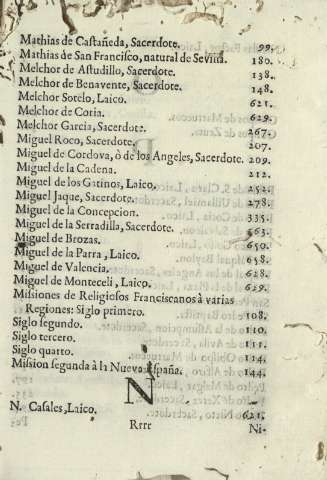 Mathias de Castañeda, Sacerdote. 99.
Mathias de San Francisco, natural de Sevilla. 180.
Melchor de Astudillo, Sacerdote. 138.
Melchor de Benavente, Sacerdote. 148.
Melchor Sotelo, Laico. 621.
Melchor de Coria. 629.
Melchor Garcia, Sacerdote. 267.
Miguel Roco, Sacerdote. 207.
Miguel de Cordova, ò de los Angeles, Sacerdote. 209.
Miguel de la Cadena. 212.
Miguel de los Gatinos, Laico. 252.
Miguel Jaque, Sacerdote. 278.
Miguel de la Concepcion. 335.
Miguel de la Serradilla, Sacerdote. 563.
Miguel de Brozas. 650.
Miguel de la Parra, Laico. 658.
Miguel de Valencia. 628.
Miguel de Monteceli, Laico. 629.
Missiones de Religiosos Franciscanos à varias
Regiones: Siglo primero. 108.
Siglo segundo. 110.
Siglo tercero. 111.
Siglo quarto. 114.
Mission segunda à la Nueva España. 144.
N
N. Casales, Laico. 621.
Rrrr Ni-